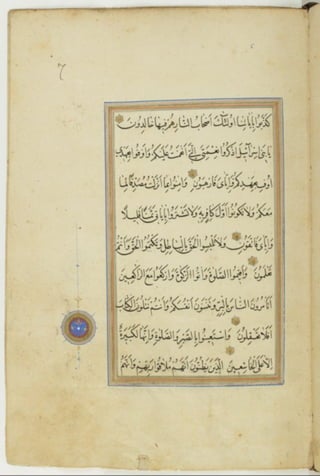 كَذَّبُوا بِآيَاتِنَا أُولَٰئِكَ أَصْحَابُ النَّارِ هُمْ فِيهَا خَالِدُونَ
يَا بَنِي إِسْرَائِيلَ اذْكُرُوا نِعْمَتِيَ الَّتِي أَنْعَمْتُ عَلَيْكُمْ وَأَوْفُوا بِعَهْدِي
أُوفِ بِعَهْدِكُمْ وَإِيَّايَ فَارْهَبُونِ وَآمِنُوا بِمَا أَنْزَلْتُ مُصَدِّقًا لِمَا
مَعَكُمْ وَلَا تَكُونُوا أَوَّلَ كَافِرٍ بِهِ وَلَا تَشْتَرُوا بِآيَاتِي ثَمَنًا قَلِيلًا
وَإِيَّايَ فَاتَّقُونِ وَلَا تَلْبِسُوا الْحَقَّ بِالْبَاطِلِ وَتَكْتُمُوا الْحَقَّ وَأَنْتُمْ
تَعْلَمُونَ وَأَقِيمُوا الصَّلَوٰةَ وَآتُوا الزَّكَوٰةَ وَارْكَعُوا مَعَ الرَّاكِعِينَ
أَتَأْمُرُونَ النَّاسَ بِالْبِرِّ وَتَنْسَوْنَ أَنْفُسَكُمْ وَأَنْتُمْ تَتْلُونَ الْكِتَابَ
أَفَلَا تَعْقِلُونَ وَاسْتَعِينُوا بِالصَّبْرِ وَالصَّلَوٰةِ وَإِنَّهَا لَكَبِيرَةٌ
إِلَّا عَلَى الْخَاشِعِينَ الَّذِينَ يَظُنُّونَ أَنَّهُمْ مُلَاقُوا رَبِّهِمْ وَأَنَّهُمْ